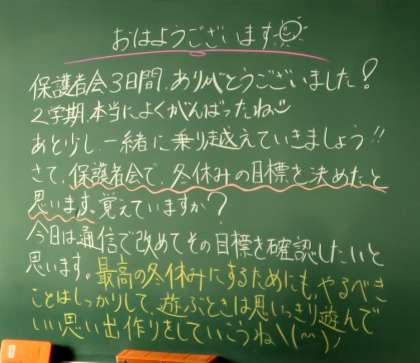 おはようございます
保護者会3日間、ありがとうございました！
2学期、本当によくがんばったね
あと少し、一緒に乗り越えていきましょう!!
さて、保護者会で、冬休みの目標を決めたと
思います。覚えていますか？
今日は通信で改めてその目標を確認したいと
思います。最高の冬休みにするためにも、やるべき
ことはしっかりして、遊ぶときは思いっきり遊んで
いい思い出作りをしていこうね\(^^)/